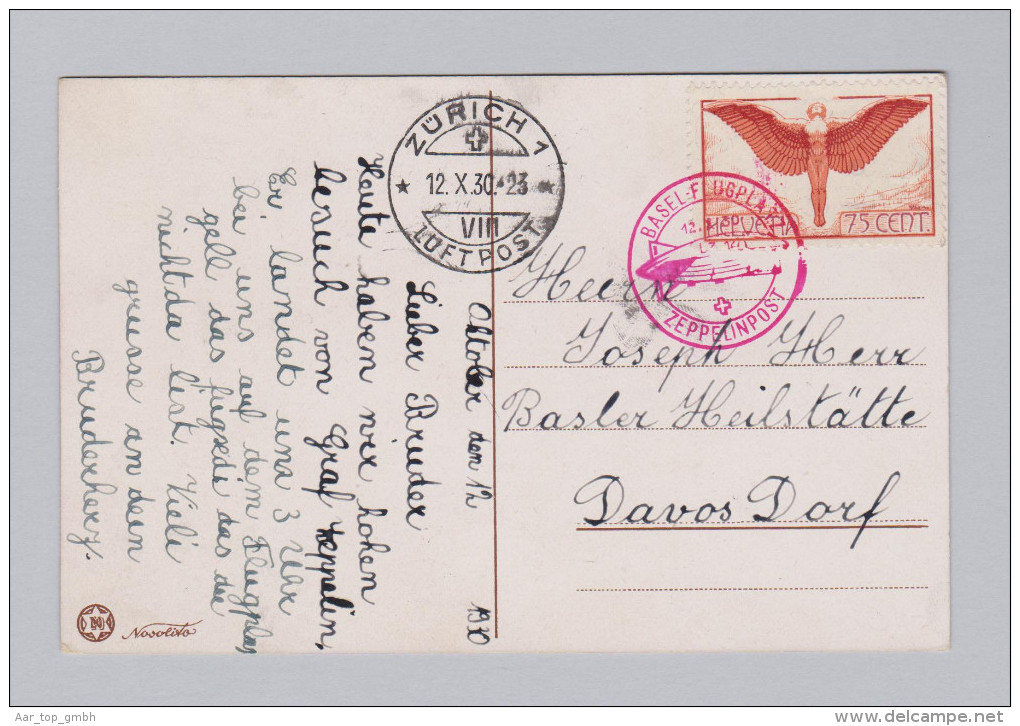 ZÜRICH 1
12. X. 30 - 23
VIII
LUFTPOST
BASEL-FLUGPLATZ
ZEPPELINPOST
HELVETIA
75 CENT.
Oktober den 12 1930
Lieber Bruder
Heute haben wir hohen
besuch von Graf Zeppelin,
Er landet uns 3 Uhr
bei uns auf dem Flugplaz
gell das fugsedi das du
nicht da bist. Viele
grusse an dein
Bruderherz.
Herrn
Joseph Herr
Basler Heilstätte
Davos Dorf
Nosolito
Aar_top_gmbh
©www.delcampe.net